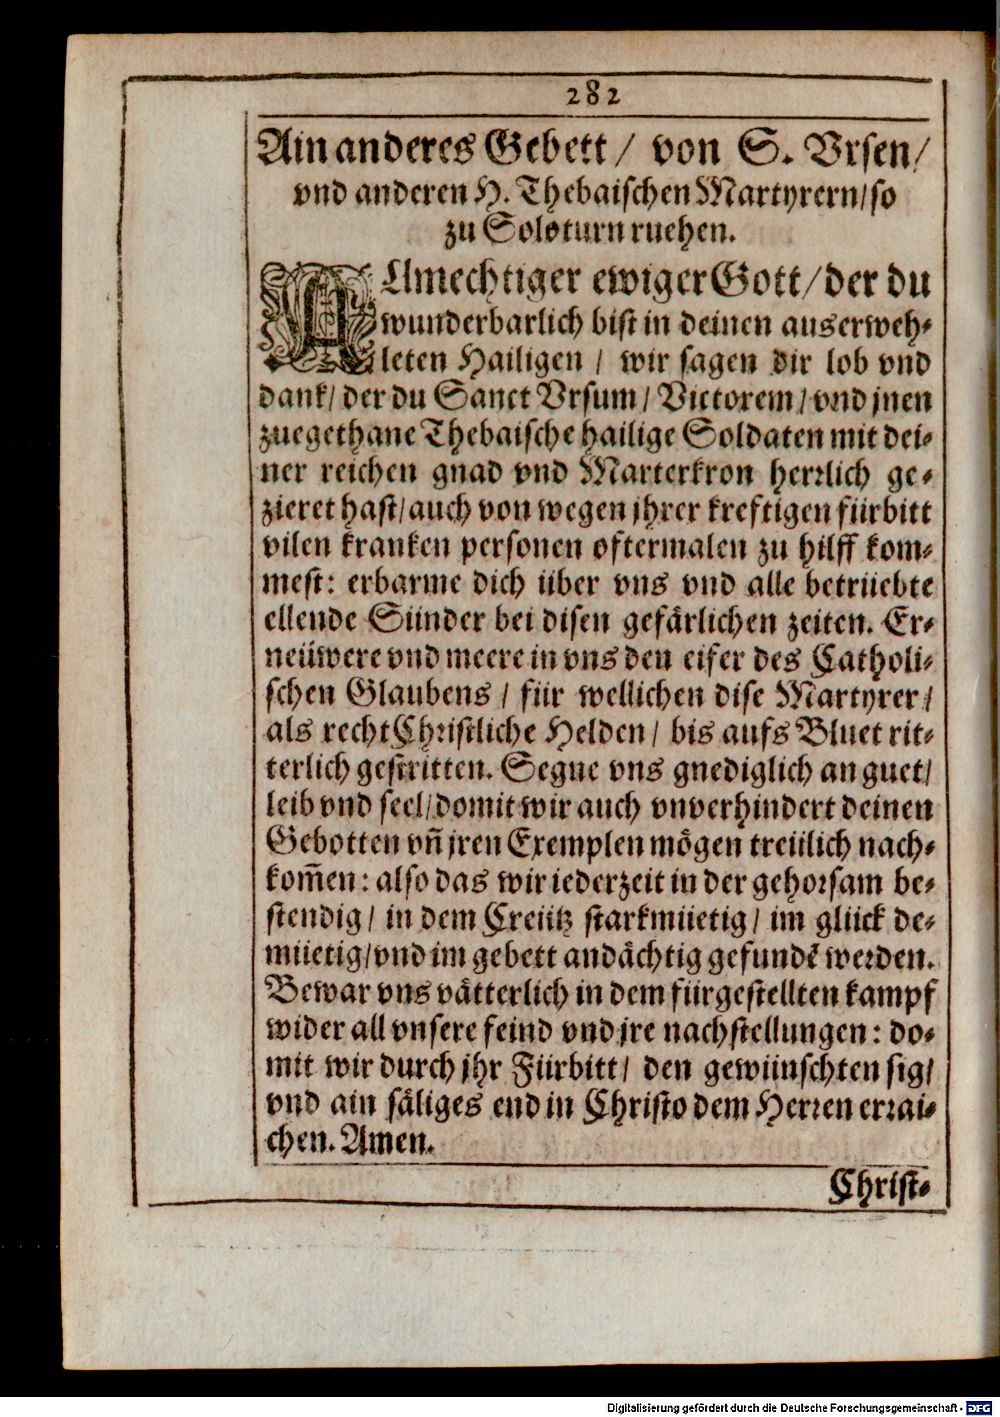 282
Ain anderes Gebett / von S. Vrsen /
vnd anderen H. Thebaischen Martyrern / so
zu Soloturn ruehen.
ALlmechtiger ewiger Gott / der du
wunderbarlich bist in deinen auserweh-
leten Hailigen / wir sagen dir lob vnd
dank / der du Sanct Vrsum / Victorem / vnd jnen
zuegethane Thebaische hailige Soldaten mit dei-
ner reichen gnad vnd Marterkron herrlich ge-
zieret hast / auch von wegen jhrer kreftigen fürbitt
vilen kranken personen oftermalen zu hilff kom-
mest: erbarme dich über vns vnd alle betrüebte
ellende Sünder bei disen gefärlichen zeiten. Er-
neüwere vnd meere in vns den eifer des Catholi-
schen Glaubens / für wellichen dise Martyrer /
als recht Christliche Helden / bis aufs Bluet rit-
terlich gestritten. Segne vns gnediglich an guet /
leib vnd seel / domit wir auch vnverhindert deinen
Gebotten vn̄ jren Exemplen mögen treülich nach-
kom̄en: also das wir iederzeit in der gehorsam be-
stendig / in dem Creütz starkmüetig / im glück de-
müetig / vnd im gebett andächtig gefundē werden.
Bewar vns vätterlich in dem fürgestellten kampf
wider all vnsere feind vnd jre nachstellungen: do-
mit wir durch jhr Fürbitt / den gewünschten sig /
vnd ain säliges end in Christo dem Herren errai-
chen. Amen.
Christ-
Digitalisierung gefördert durch die Deutsche Forschungsgemeinschaft - DFG